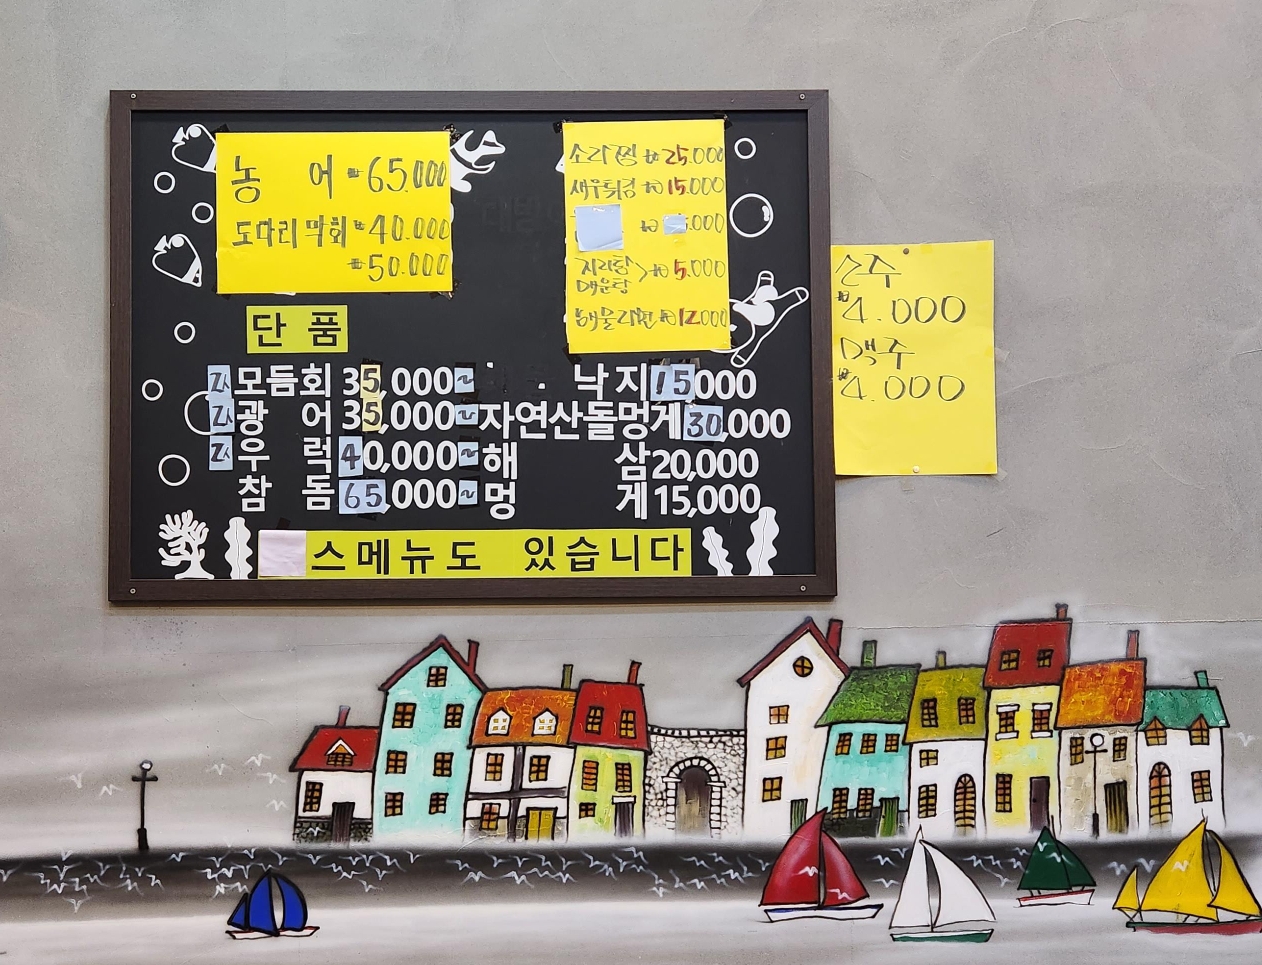 농 어 ₩65.000
도다리막회 ₩40.000
₩50.000
소라찜 ₩25.000
새우튀김 ₩15.000
₩ .000
지리탕
매운탕 > ₩5.000
해물라면 ₩12.000
소주
₩4.000
맥주
₩4.000
단 품
모듬회 35,000~
광 어 35,000~
우 럭 40,000~
참 돔 65,000~
낙 지 15000
자연산돌멍게 30,000
해 삼 20,000
멍 게 15,000
스메뉴도 있습니다